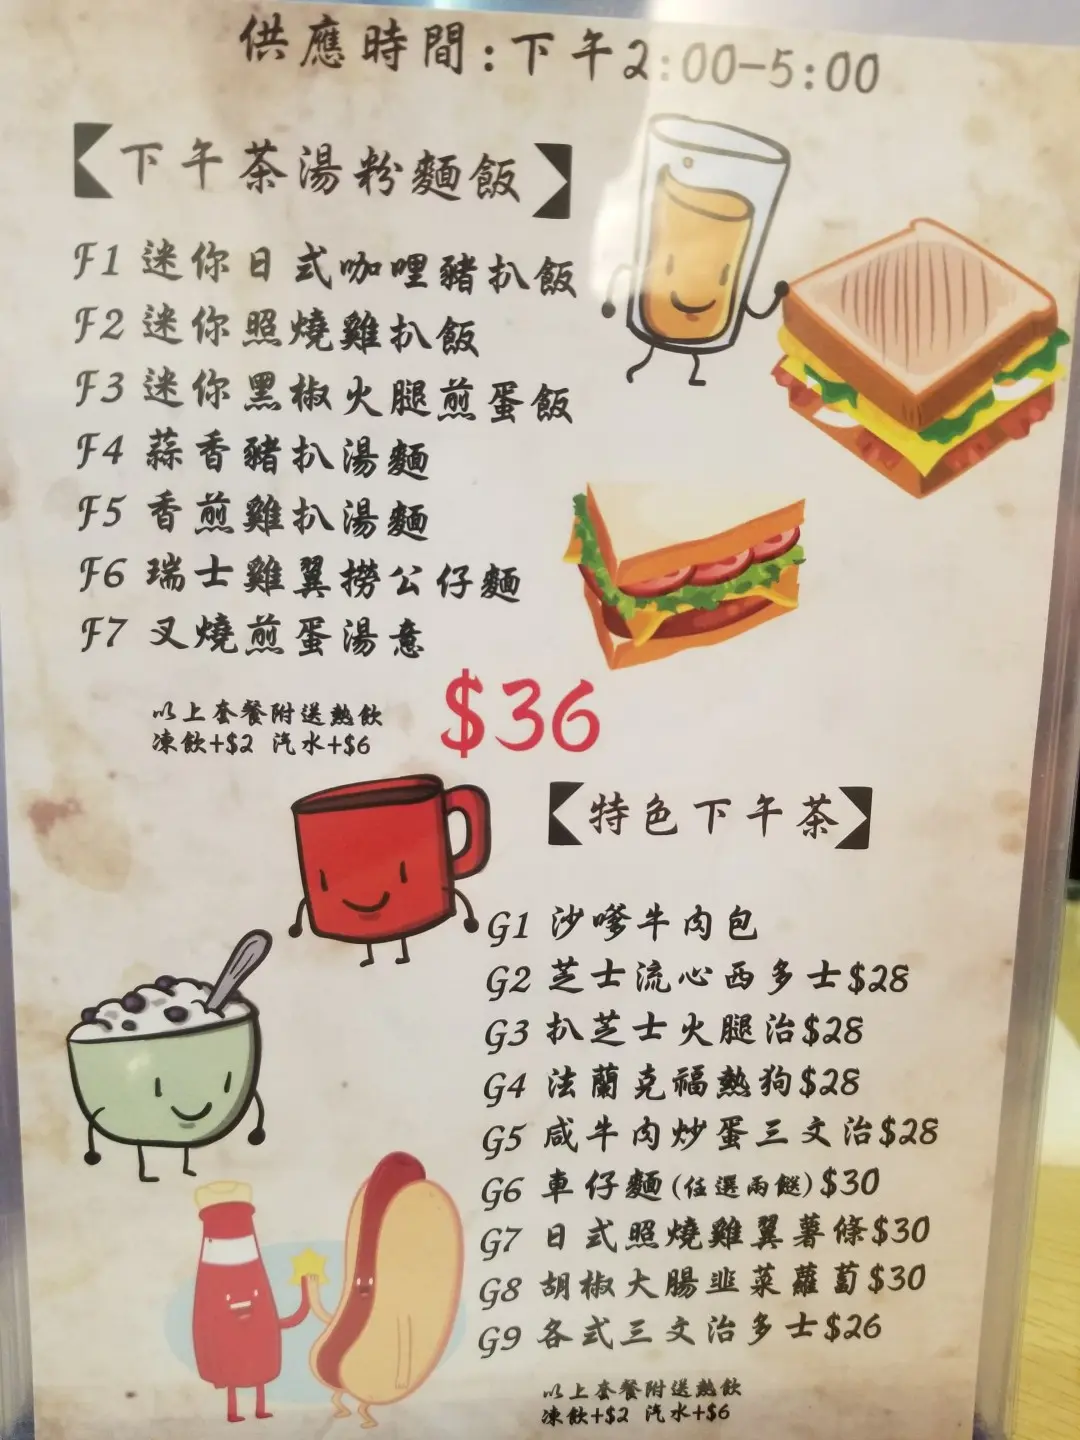 供應時間:下午2:00-5:00
【下午茶湯粉麵飯】
F1 迷你日式咖哩豬扒飯
F2 迷你照燒雞扒飯
F3 迷你黑椒火腿煎蛋飯
F4 蒜香豬扒湯麵
F5 香煎雞扒湯麵
F6 瑞士雞翼撈公仔麵
F7 叉燒煎蛋湯意
$36
以上套餐附送熱飲
凍飲+$2 汽水+$6
【特色下午茶】
G1 沙嗲牛肉包
G2 芝士流心西多士$28
G3 扒芝士火腿治$28
G4 法蘭克福熱狗$28
G5 咸牛肉炒蛋三文治$28
G6 車仔麵(任選兩餸)$30
G7 日式照燒雞翼薯條$30
G8 胡椒大腸韭菜蘿蔔$30
G9 各式三文治多士$26
以上套餐附送熱飲
凍飲+$2 汽水+$6